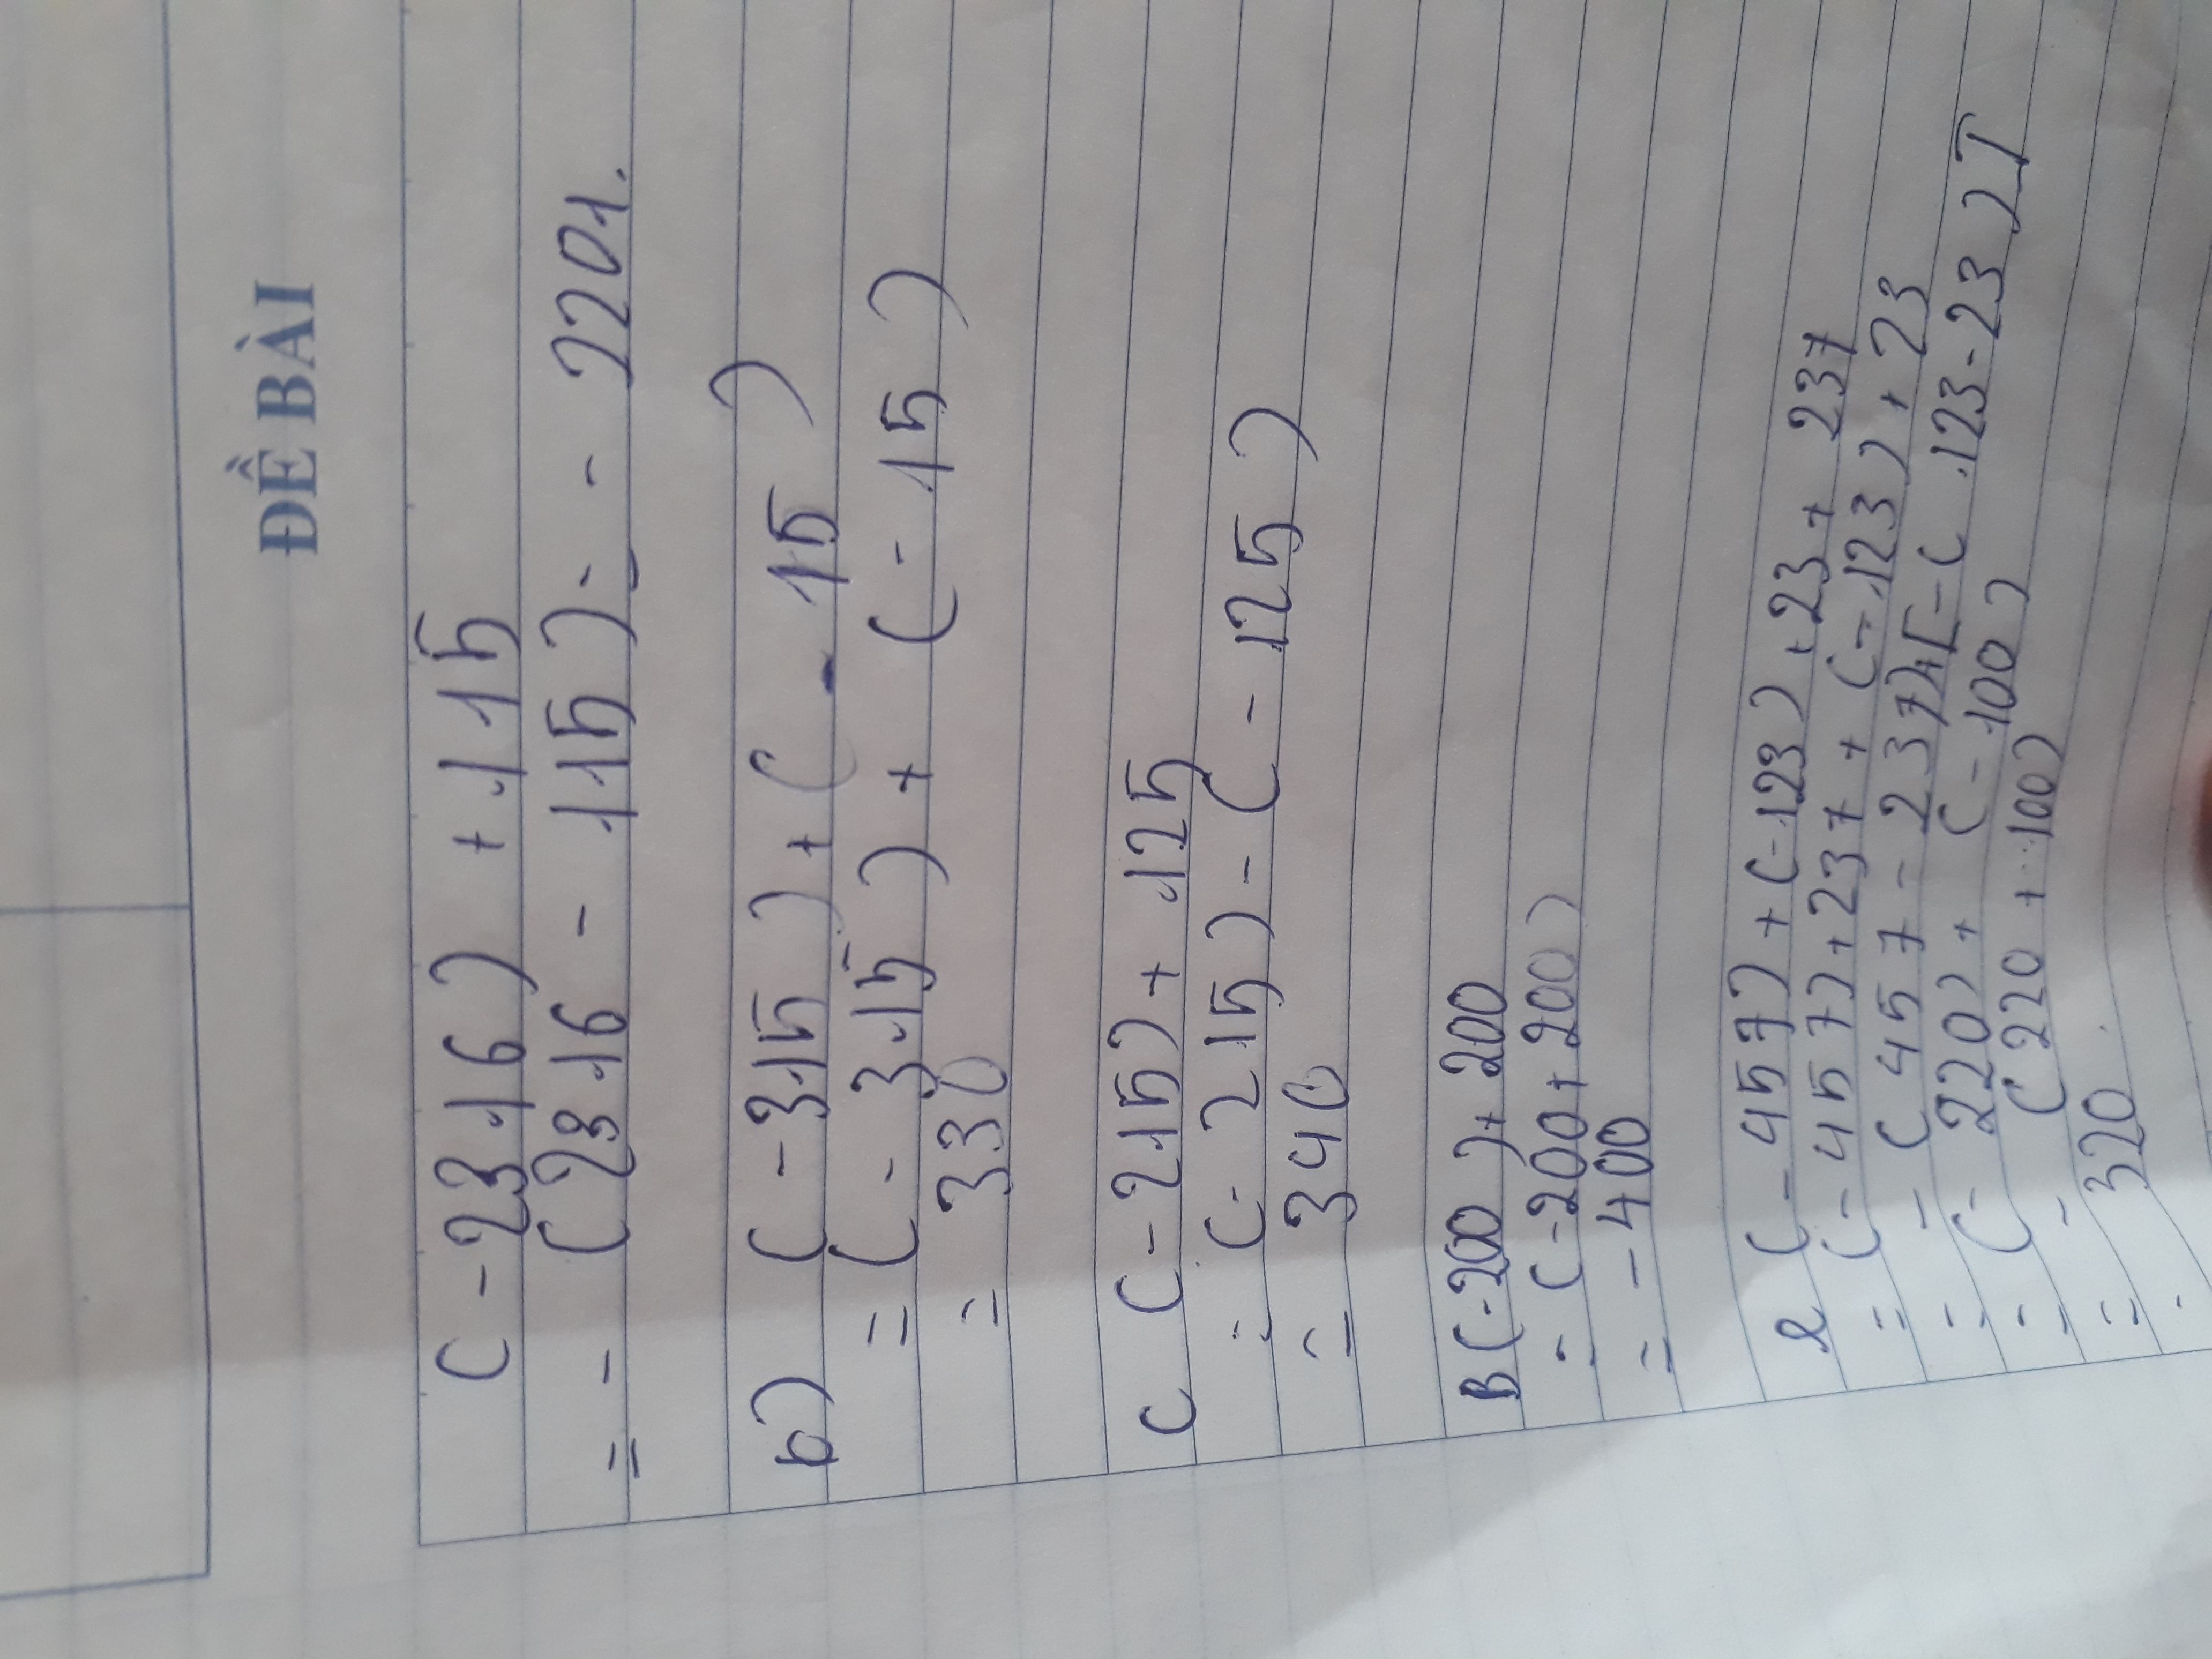 ĐỀ BÀI
(-2316) + 115
= - (2316 - 115) = - 2201.
b) (-315) + (-15)
= (-315) + (-15)
= 330
C (-215) + 125
= (-215) - (-125)
= 340
B (-200) + 200
= (-200 + 200)
= -400
(-457) + (-123) + 23 + 237
= (-457) + 237 + (-123) + 23
= - (457 - 237) + [-(123-23)]
= (-220) + (-100)
= - (220 + 100)
= 320.